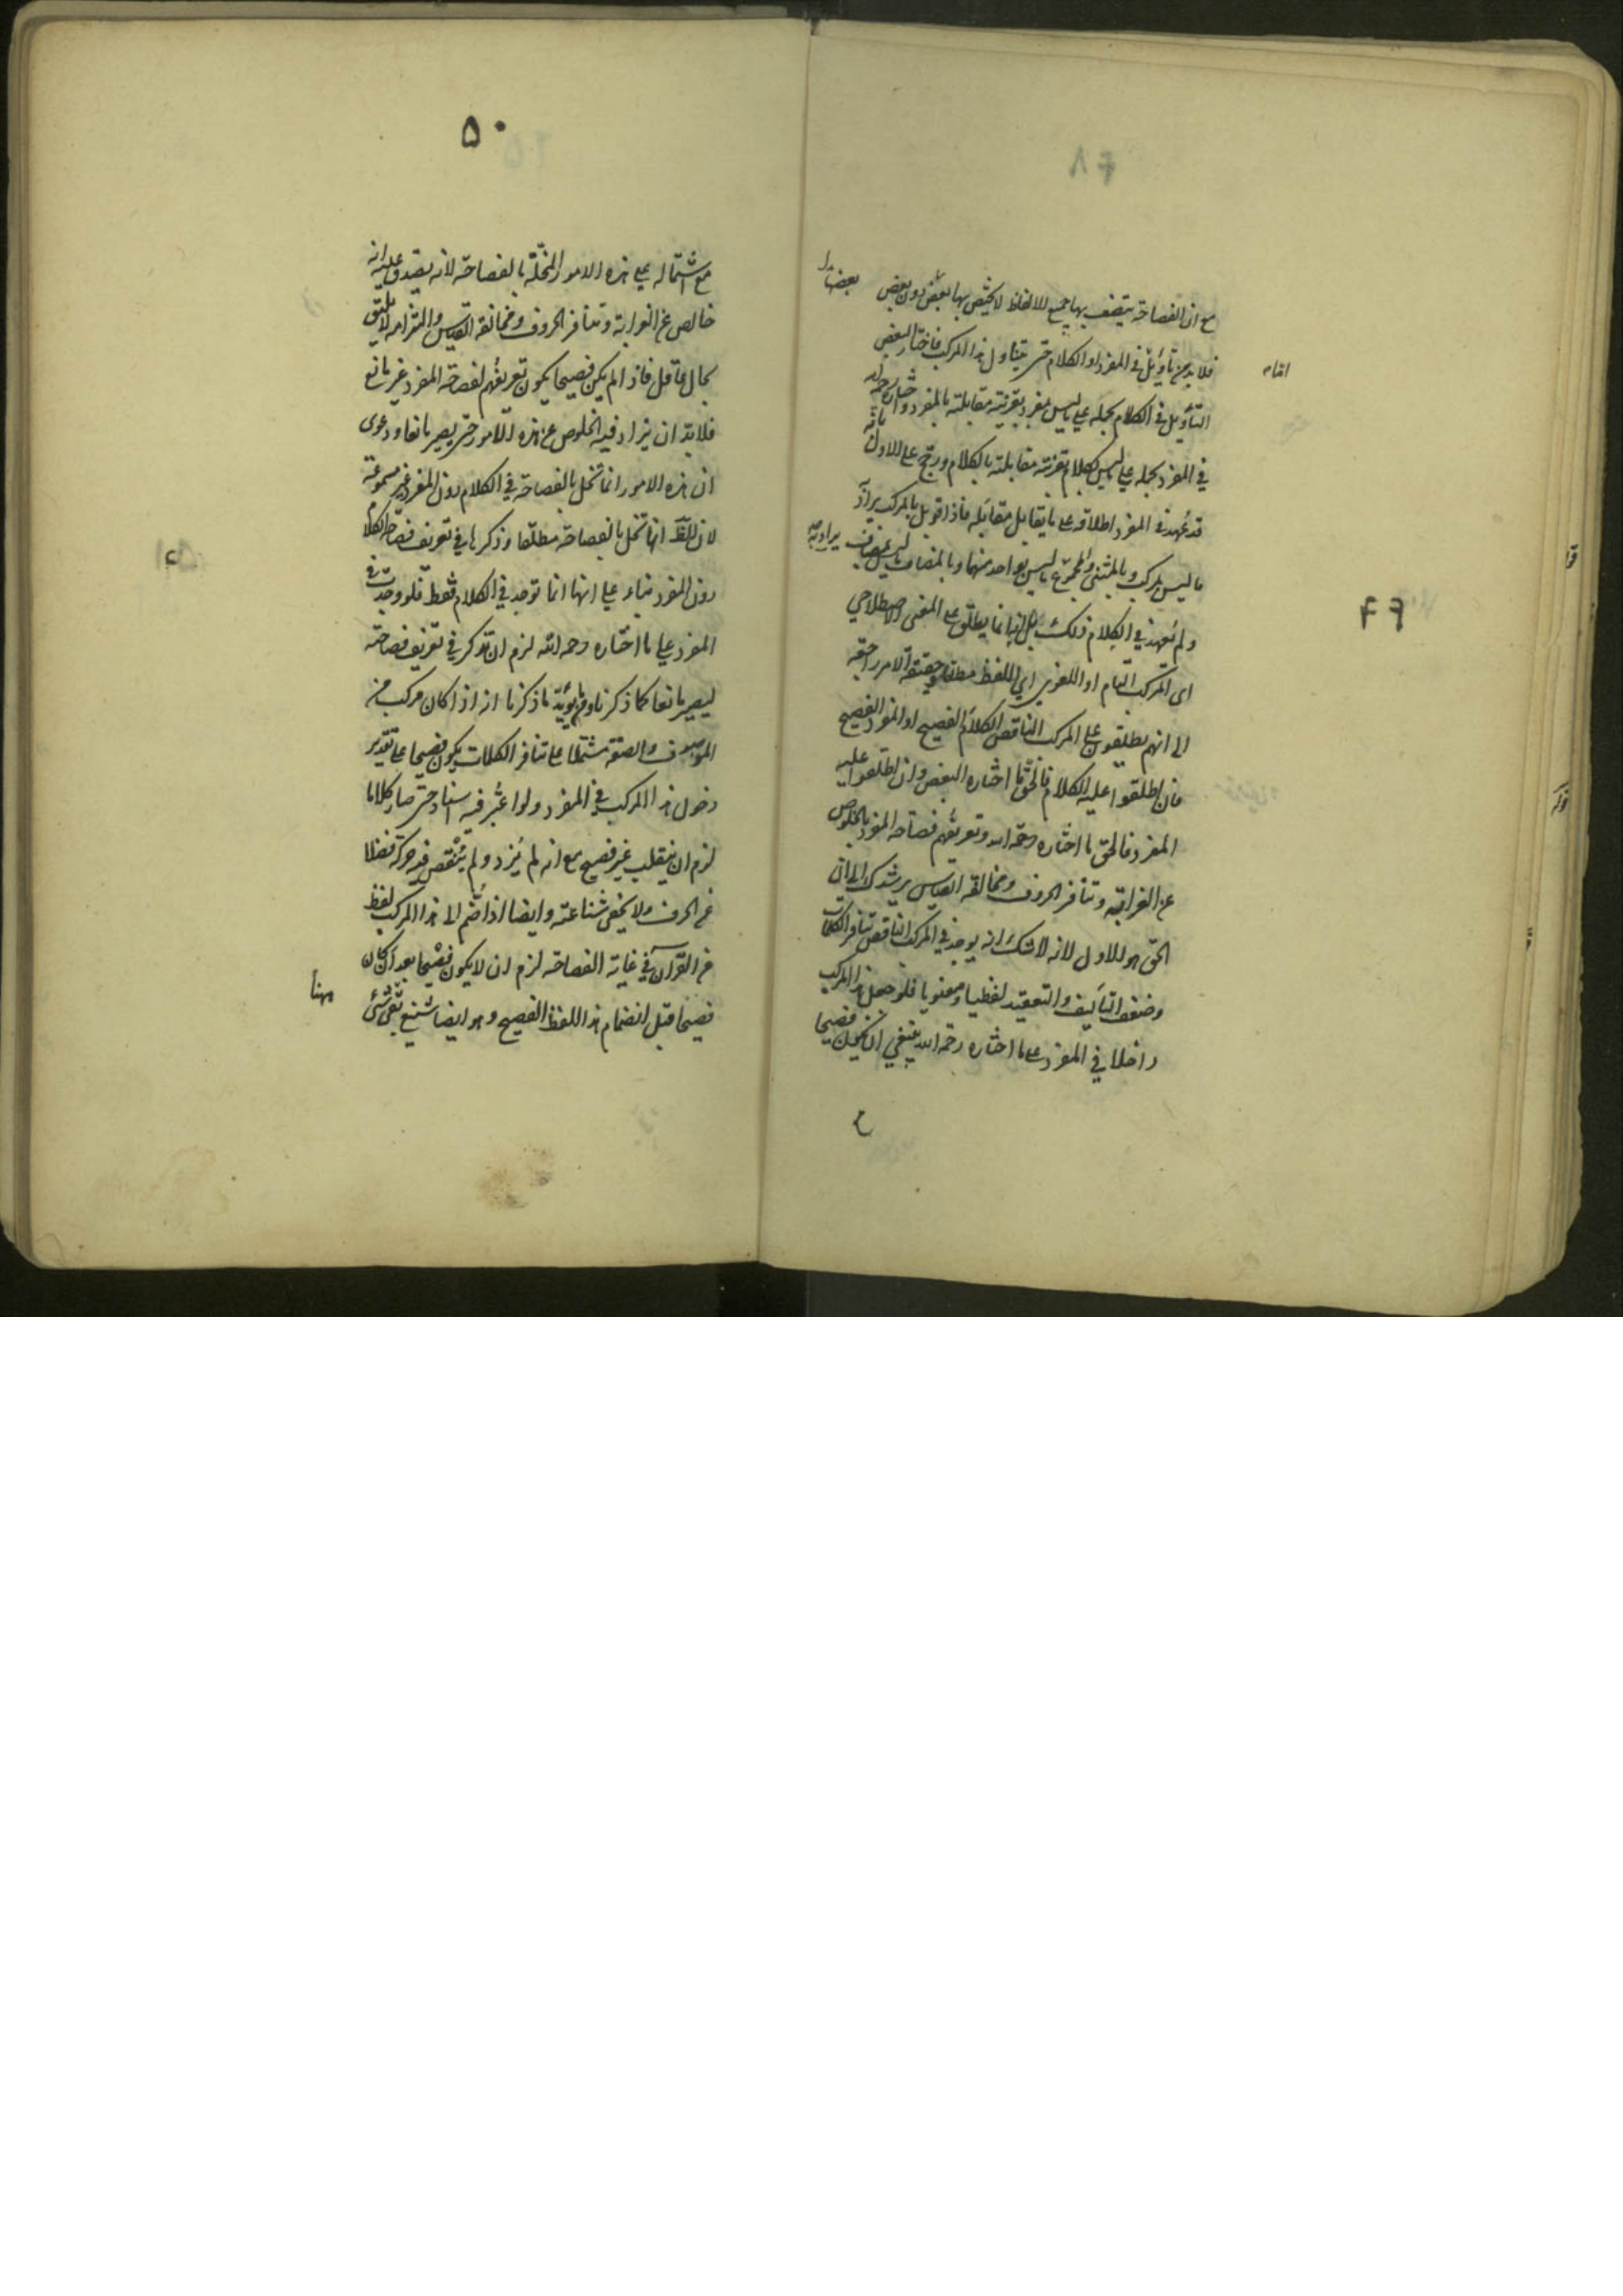 مع ان الفصاحة يتصف بها جميع الالفاظ لا يختص بها بعض دون بعض
بعضها
فلا بد من تأويل في المفرد او الكلام حتى يتناول هذا المركب فاختار البعض
التأويل في الكلام بحمله على ما ليس بمفرد بقرينة مقابلته بالمفرد واختار رحمه الله
في المفرد بحمله على ما ليس بكلام بقرينة مقابلته بالكلام ورجح على الاول بانه
قد عهد في المفرد اطلاقه على ما يقابل مقابله فاذا قوبل بالمركب يراد
ما ليس بمركب وبالمثنى والمجموع ما ليس بواحد منهما وبالمضاف ما ليس بمضاف
يراد به
ولم يعهد في الكلام ذلك بل انما يطلق على المعنى الاصطلاحي
اى المركب التام او اللغوي اي اللفظ مطلقا وحقيقة الامر راجعة
الى انهم يطلقون على المركب الناقص الكلام الفصيح او المفرد الفصيح
فان اطلقوا عليه الكلام فالحق ما اختاره البعض وان اطلقوا عليه
المفرد فالحق ما اختاره رحمه الله وتعريفهم فصاحة المفرد بالخلوص
عن الغرابة وتنافر الحروف ومخالفة القياس يرشدك الى ان
الحق هو الاول لانه لا شك انه يوجد في المركب الناقص تنافر الكلمات
وضعف التأليف والتعقيد لفظيا ومعنويا فلو جعل هذا المركب
داخلا في المفرد على ما اختاره رحمه الله ينبغي ان يكون فصيحا
۴۹
۵۰
مع اشتماله على هذه الامور المخلة بالفصاحة لانه يصدق عليه انه
خالص عن الغرابة وتنافر الحروف ومخالفة القياس والتزامه لا يليق
بحال عاقل فاذا لم يكن فصيحا يكون تعريفهم لفصاحة المفرد غير مانع
فلا بد ان يزاد فيه الخلوص عن هذه الامور حتى يصير مانعا ودعوى
ان هذه الامور انما تخل بالفصاحة في الكلام دون المفرد غير مسموعة
لان الظ انها تخل بالفصاحة مطلقا وذكرها في تعريف فصاحة الكلام
دون المفرد بناء على انها انما توجد في الكلام فقط فلو وجدت في
المفرد على ما اختاره رحمه الله لزم ان تذكر في تعريف فصاحته
ليصير مانعا كما ذكرنا ومما يؤيد ما ذكرنا انه اذا كان مركب من
الموصوف والصفة مشتملا على تنافر الكلمات يكون فصيحا على تقدير
دخول هذا المركب في المفرد ولو اعتبر فيه اسناد حتى صار كلاما
لزم ان ينقلب غير فصيح مع انه لم يزد ولم ينقص فيه حركة فضلا
عن الحرف ولا يخفى شناعته وايضا اذا ضم الى هذا المركب لفظ
من القرآن في غاية الفصاحة لزم ان لا يكون فصيحا بعد ان كان
فصيحا قبل انضمام هذا اللفظ الفصيح وهو ايضا شنيع بقى شئ
ههنا